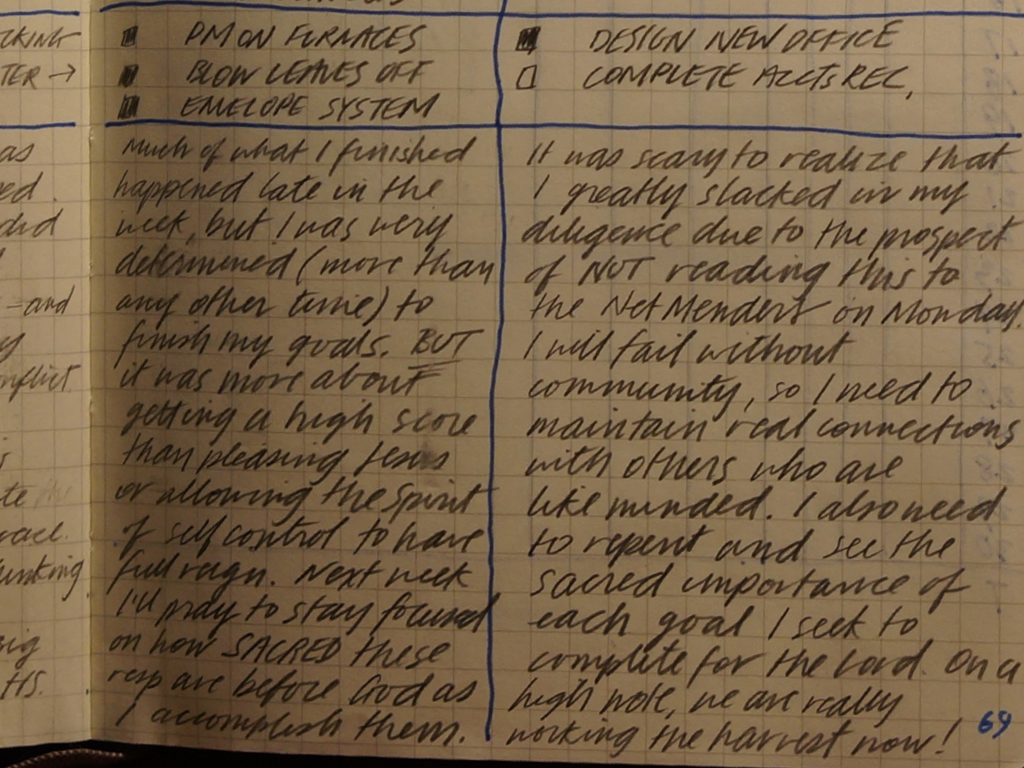 PM ON FURNACES
BLOW LEAVES OFF
ENVELOPE SYSTEM
Much of what I finished
happened late in the
week, but I was very
determined (more than
any other time) to
finish my goals. BUT
it was more about
getting a high score
than pleasing Jesus
or allowing the Spirit
of self control to have
full reign. Next week
I'll pray to stay focused
on how SACRED these
resp are before God as
I accomplish them.
DESIGN NEW OFFICE
COMPLETE ACCTS REC.
It was scary to realize that
I greatly slacked in my
diligence due to the prospect
of NOT reading this to
the Net Menders on Monday.
I will fail without
community, so I need to
maintain real connections
with others who are
like minded. I also need
to repent and see the
sacred importance of
each goal I seek to
complete for the Lord. On a
high note, we are really
working the harvest now!
69